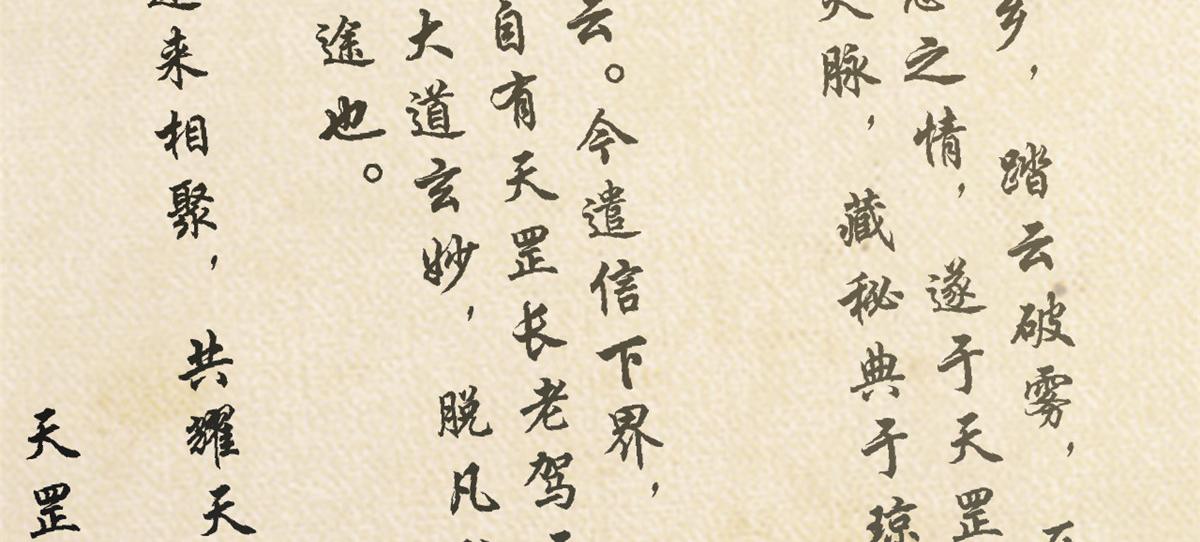 乡，踏云破雾，
之情，遂于天罡
灵脉，藏秘典于琼
云。今遣信下界，
自有天罡长老驾
大道玄妙，脱凡
途也。
来相聚，共耀天
天罡